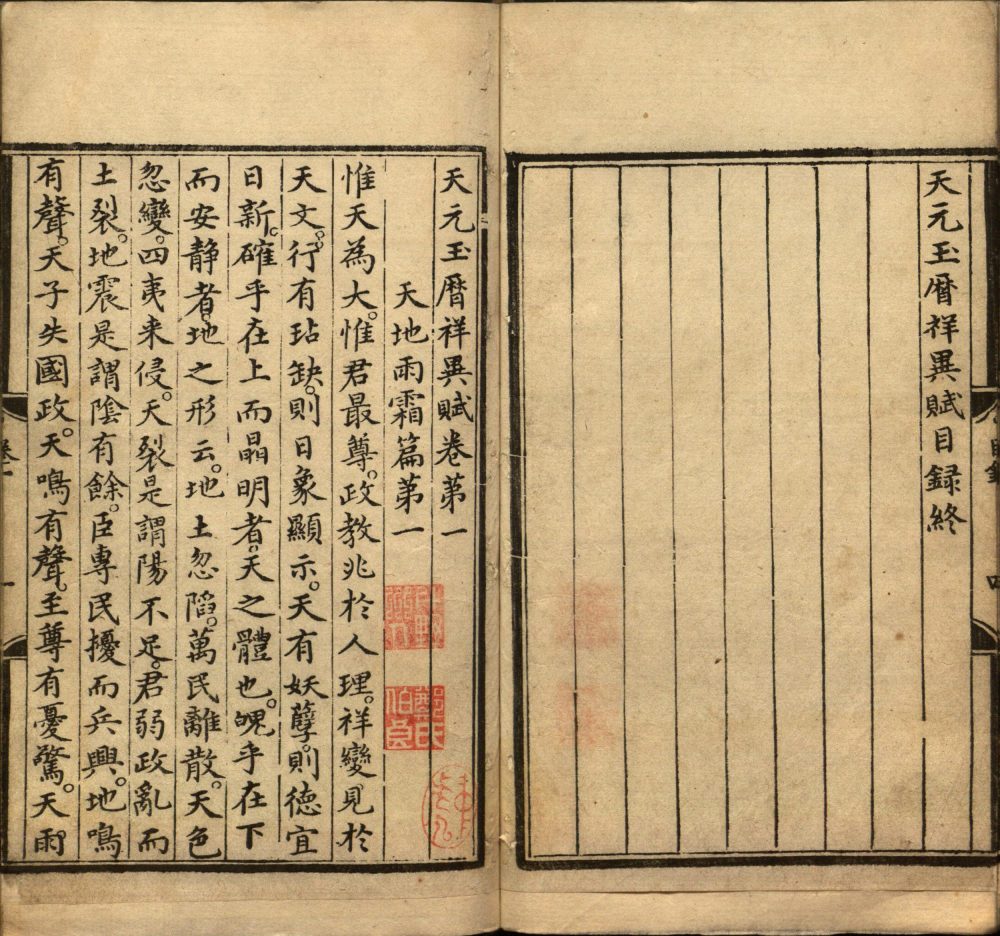 天元玉曆祥異賦目録終
天元玉曆祥異賦卷第一
天地雨霜篇第一
惟天為大。惟君最尊。政教兆於人理。祥變見於
天文。行有玷缺。則日象顯示。天有妖孽。則德宜
日新。確乎在上而晶明者。天之體也。隗乎在下
而安静者。地之形云。地土忽陷。萬民離散。天色
忽變。四夷来侵。天裂是謂陽不足。君弱政亂而
土裂。地震是謂陰有餘。臣專民擾而兵興。地鳴
有聲。天子失國政。天鳴有聲。至尊有憂驚。天雨